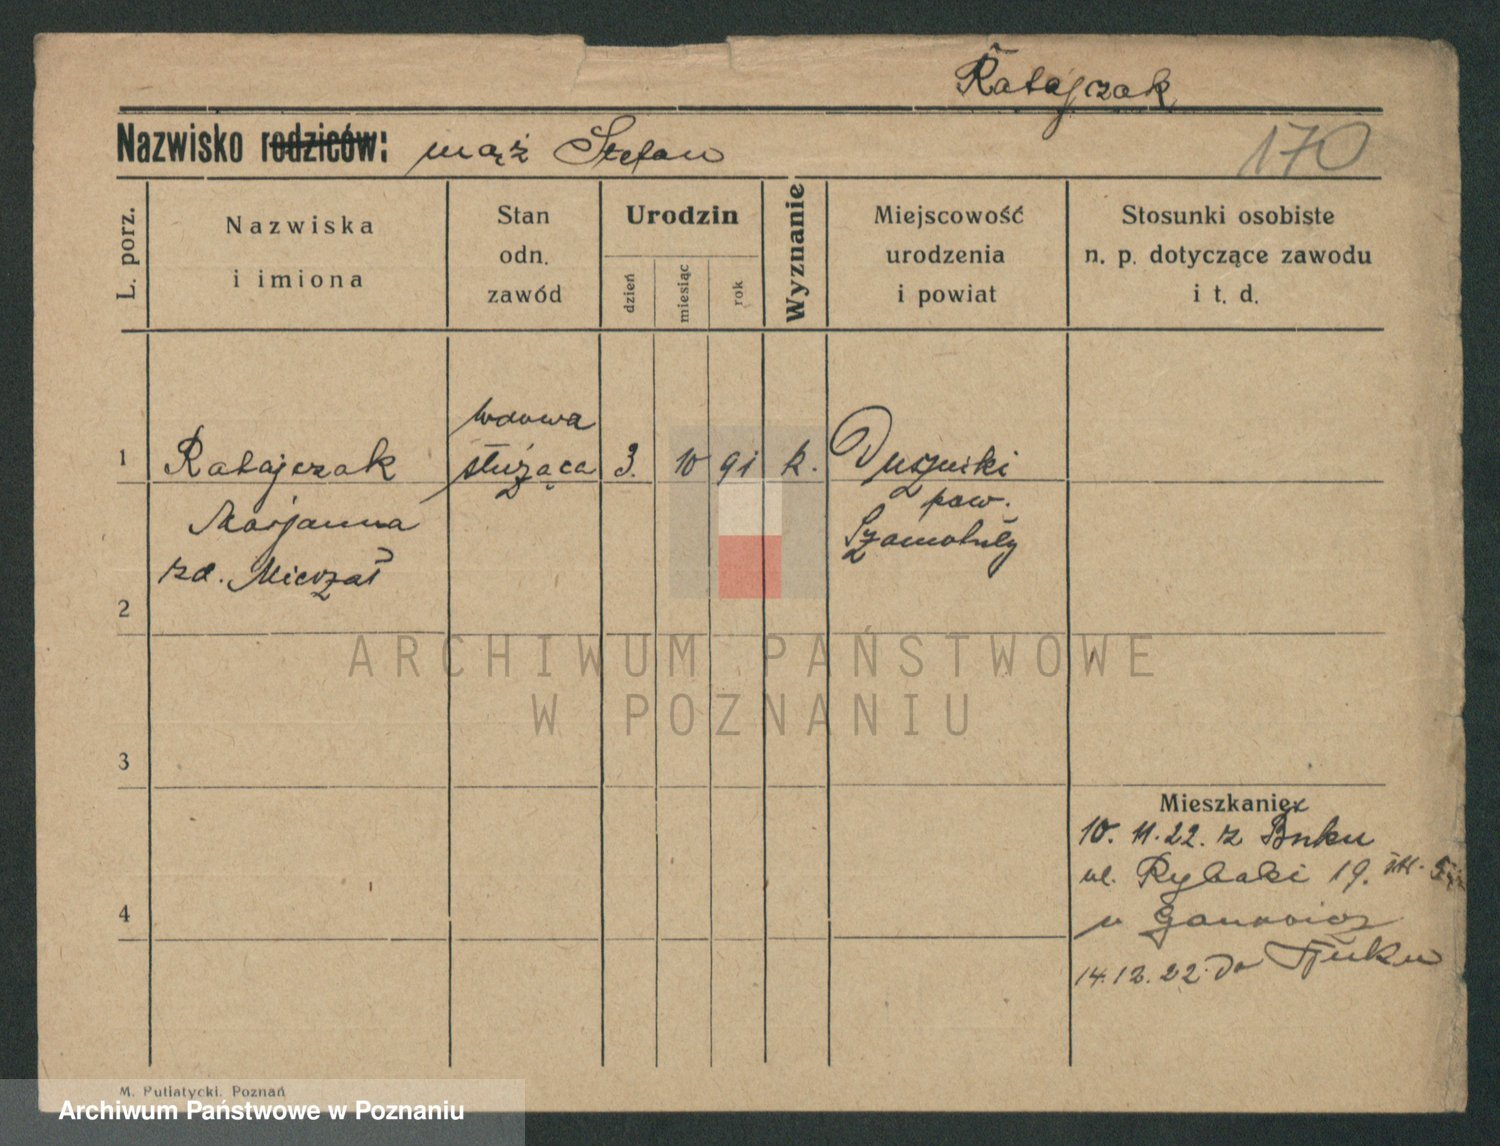 Ratajczak
Nazwisko rodziców: mąż Stefan
170
L. porz.
Nazwiska
i imiona
Stan
odn.
zawód
Urodzin
dzień
miesiąc
rok
Wyznanie
Miejscowość
urodzenia
i powiat
Stosunki osobiste
n. p. dotyczące zawodu
i t. d.
wdowa
1 Ratajczak służąca 3. 10 91 k. Duszniki
Marjanna
pow.
Szamotuły
zd.
2
ARCHIWUM PAŃSTWOWE
W POZNANIU
3
Mieszkanie
10. 11. 22. z Buku
ul. Rybaki 19.
4
u
14. 12. 22. do Buku
M. Putiatycki, Poznań
Archiwum Państwowe w Poznaniu